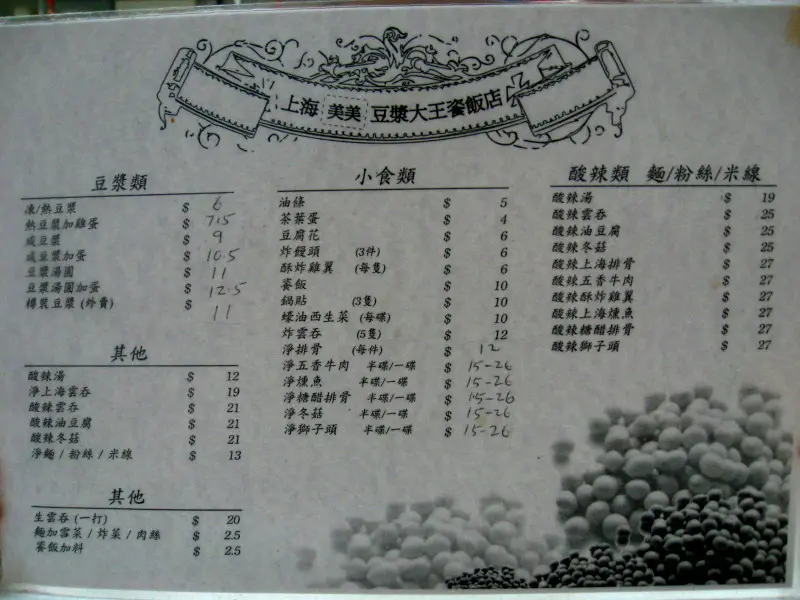 上海 美美 豆漿大王粢飯店
豆漿類
凍/熱豆漿 $ 6
熱豆漿加雞蛋 $ 7.5
咸豆漿 $ 9
咸豆漿加蛋 $ 10.5
豆漿湯圓 $ 11
豆漿湯圓加蛋 $ 12.5
樽裝豆漿 (外賣) $ 11
其他
酸辣湯 $ 12
淨上海雲吞 $ 19
酸辣雲吞 $ 21
酸辣油豆腐 $ 21
酸辣冬菇 $ 21
淨麵/粉絲/米線 $ 13
其他
生雲吞 (一打) $ 20
麵加雪菜/炸菜/肉絲 $ 2.5
粢飯加料 $ 2.5
小食類
油條 $ 5
茶葉蛋 $ 4
豆腐花 $ 6
炸饅頭 (3件) $ 6
酥炸雞翼 (每隻) $ 6
粢飯 $ 10
鍋貼 (3隻) $ 10
蠔油西生菜 (每碟) $ 10
炸雲吞 (5隻) $ 12
淨排骨 (每件) $ 12
淨五香牛肉 半碟/一碟 $ 15-26
淨燻魚 半碟/一碟 $ 15-26
淨糖醋排骨 半碟/一碟 $ 15-26
淨冬菇 半碟/一碟 $ 15-26
淨獅子頭 半碟/一碟 $ 15-26
酸辣類 麵/粉絲/米線
酸辣湯 $ 19
酸辣雲吞 $ 25
酸辣油豆腐 $ 25
酸辣冬菇 $ 25
酸辣上海排骨 $ 27
酸辣五香牛肉 $ 27
酸辣酥炸雞翼 $ 27
酸辣上海燻魚 $ 27
酸辣糖醋排骨 $ 27
酸辣獅子頭 $ 27